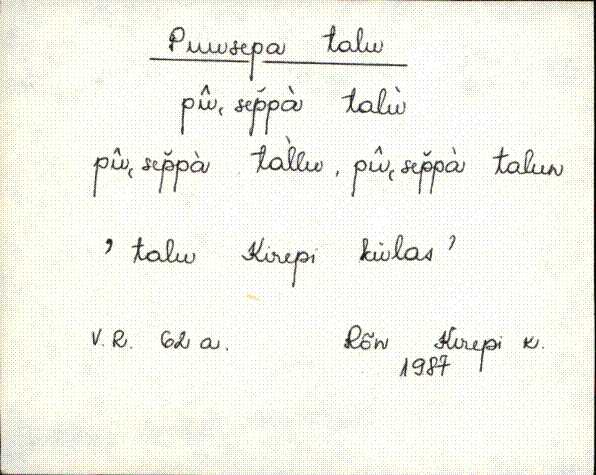 Puusepa talu
pû̬, sep̆pà talù
pû̬, sep̆pà tàllu, pû̬, sep̆pà talun
’talu Kirepi külas’
V.R. 62 a. Rõn Kirepi k.
1987